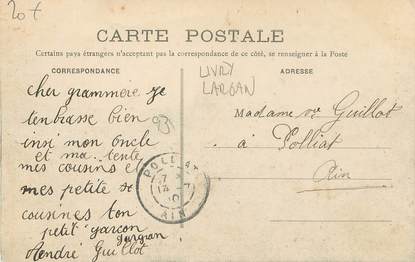 20f
CARTE POSTALE
Certains pays étrangers n'acceptant pas la correspondance de ce côté, se renseigner à la Poste
CORRESPONDANCE
cher grammere je
tenbrasse bien
insi mon oncle
et ma tente
mes cousins et
mes petite de
cousines ton
petit garcon
Guillot
LIVRY
LARGAN
ADRESSE
Madame ve Guillot
à Polliat
Ain
POLLIAT
AIN